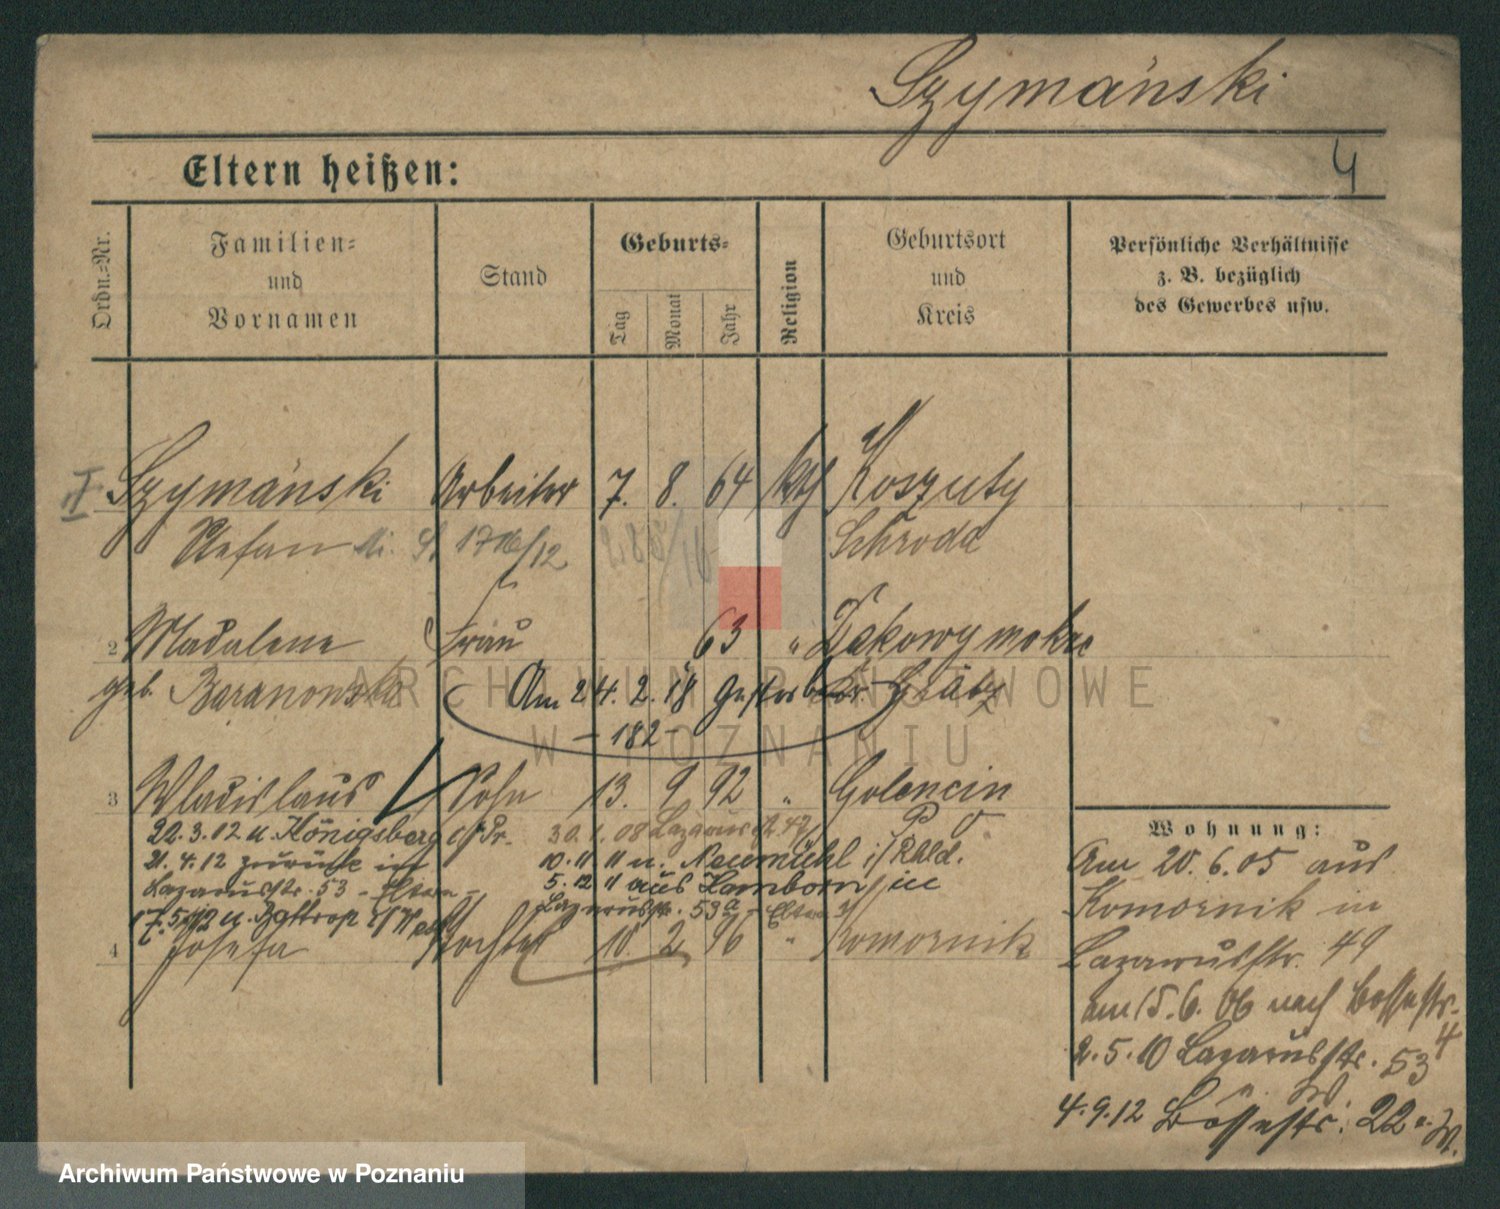 Szymański
4
Eltern heißen:
Ordn.-Nr.
Familien-
und
Vornamen
Stand
Geburts-
Tag
Monat
Jahr
Religion
Geburtsort
und
Kreis
Persönliche Verhältnisse
z. B. bezüglich
des Gewerbes usw.
I Szymański Arbeiter 7. 8. 64 kth Koszuty
Stefan 12 Schroda
2 Madalene Frau 63 " Dakowy mokre
geb. Baranowska Am 24. 2. 18 gestorben Kr. Grätz
- 182 -
3 Wladislaus Sohn 13. 9 92 " Golencin
22.3.12 n. Königsberg i/Pr. 30.1.08 Lazarusstr. 47 P. O.
21.4.12 zurück in 10.11.11 n. Neumühl i/Rhld.
Lazarusstr. 53 - Eltern - 5.12.11 aus Hamborn in
17.5.12 n. i/W Lazarusstr. 53a - Eltern
4 Josefa Tochter 10. 2 96 " Komornik
Wohnung:
Am 20.6.05 aus
Komornik in
Lazarusstr. 49
am 15.6.06 nach Bossestr.
4
2.5.10 Lazarusstr. 53
4.9.12 Bossestr. 22
ARCHIWUM PAŃSTWOWE
W POZNANIU
Archiwum Państwowe w Poznaniu